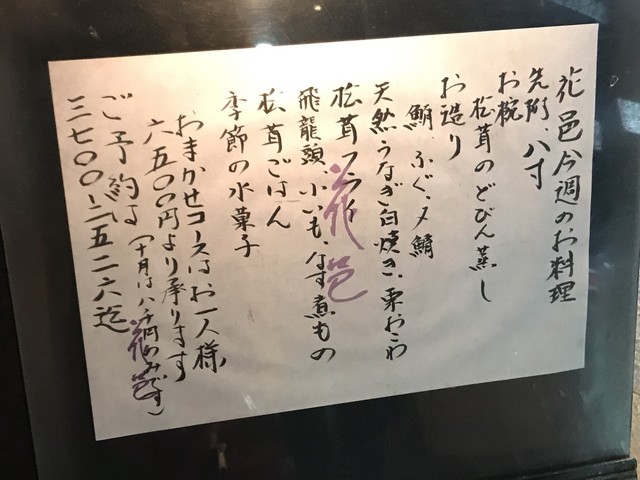 花邑今週のお料理
先附、八寸
お椀
松茸のどびん蒸し
お造り
鮪、ふぐ、〆鯖
天然うなぎ白焼き、栗おこわ
松茸フライ
飛龍頭、小いも、なす煮もの
松茸ごはん
季節の水菓子
おまかせコースはお一人様
六五〇〇円より承ります
(十月は八千円のみです)
ご予約は
三七〇〇-二五二六迄
花邑
花邑